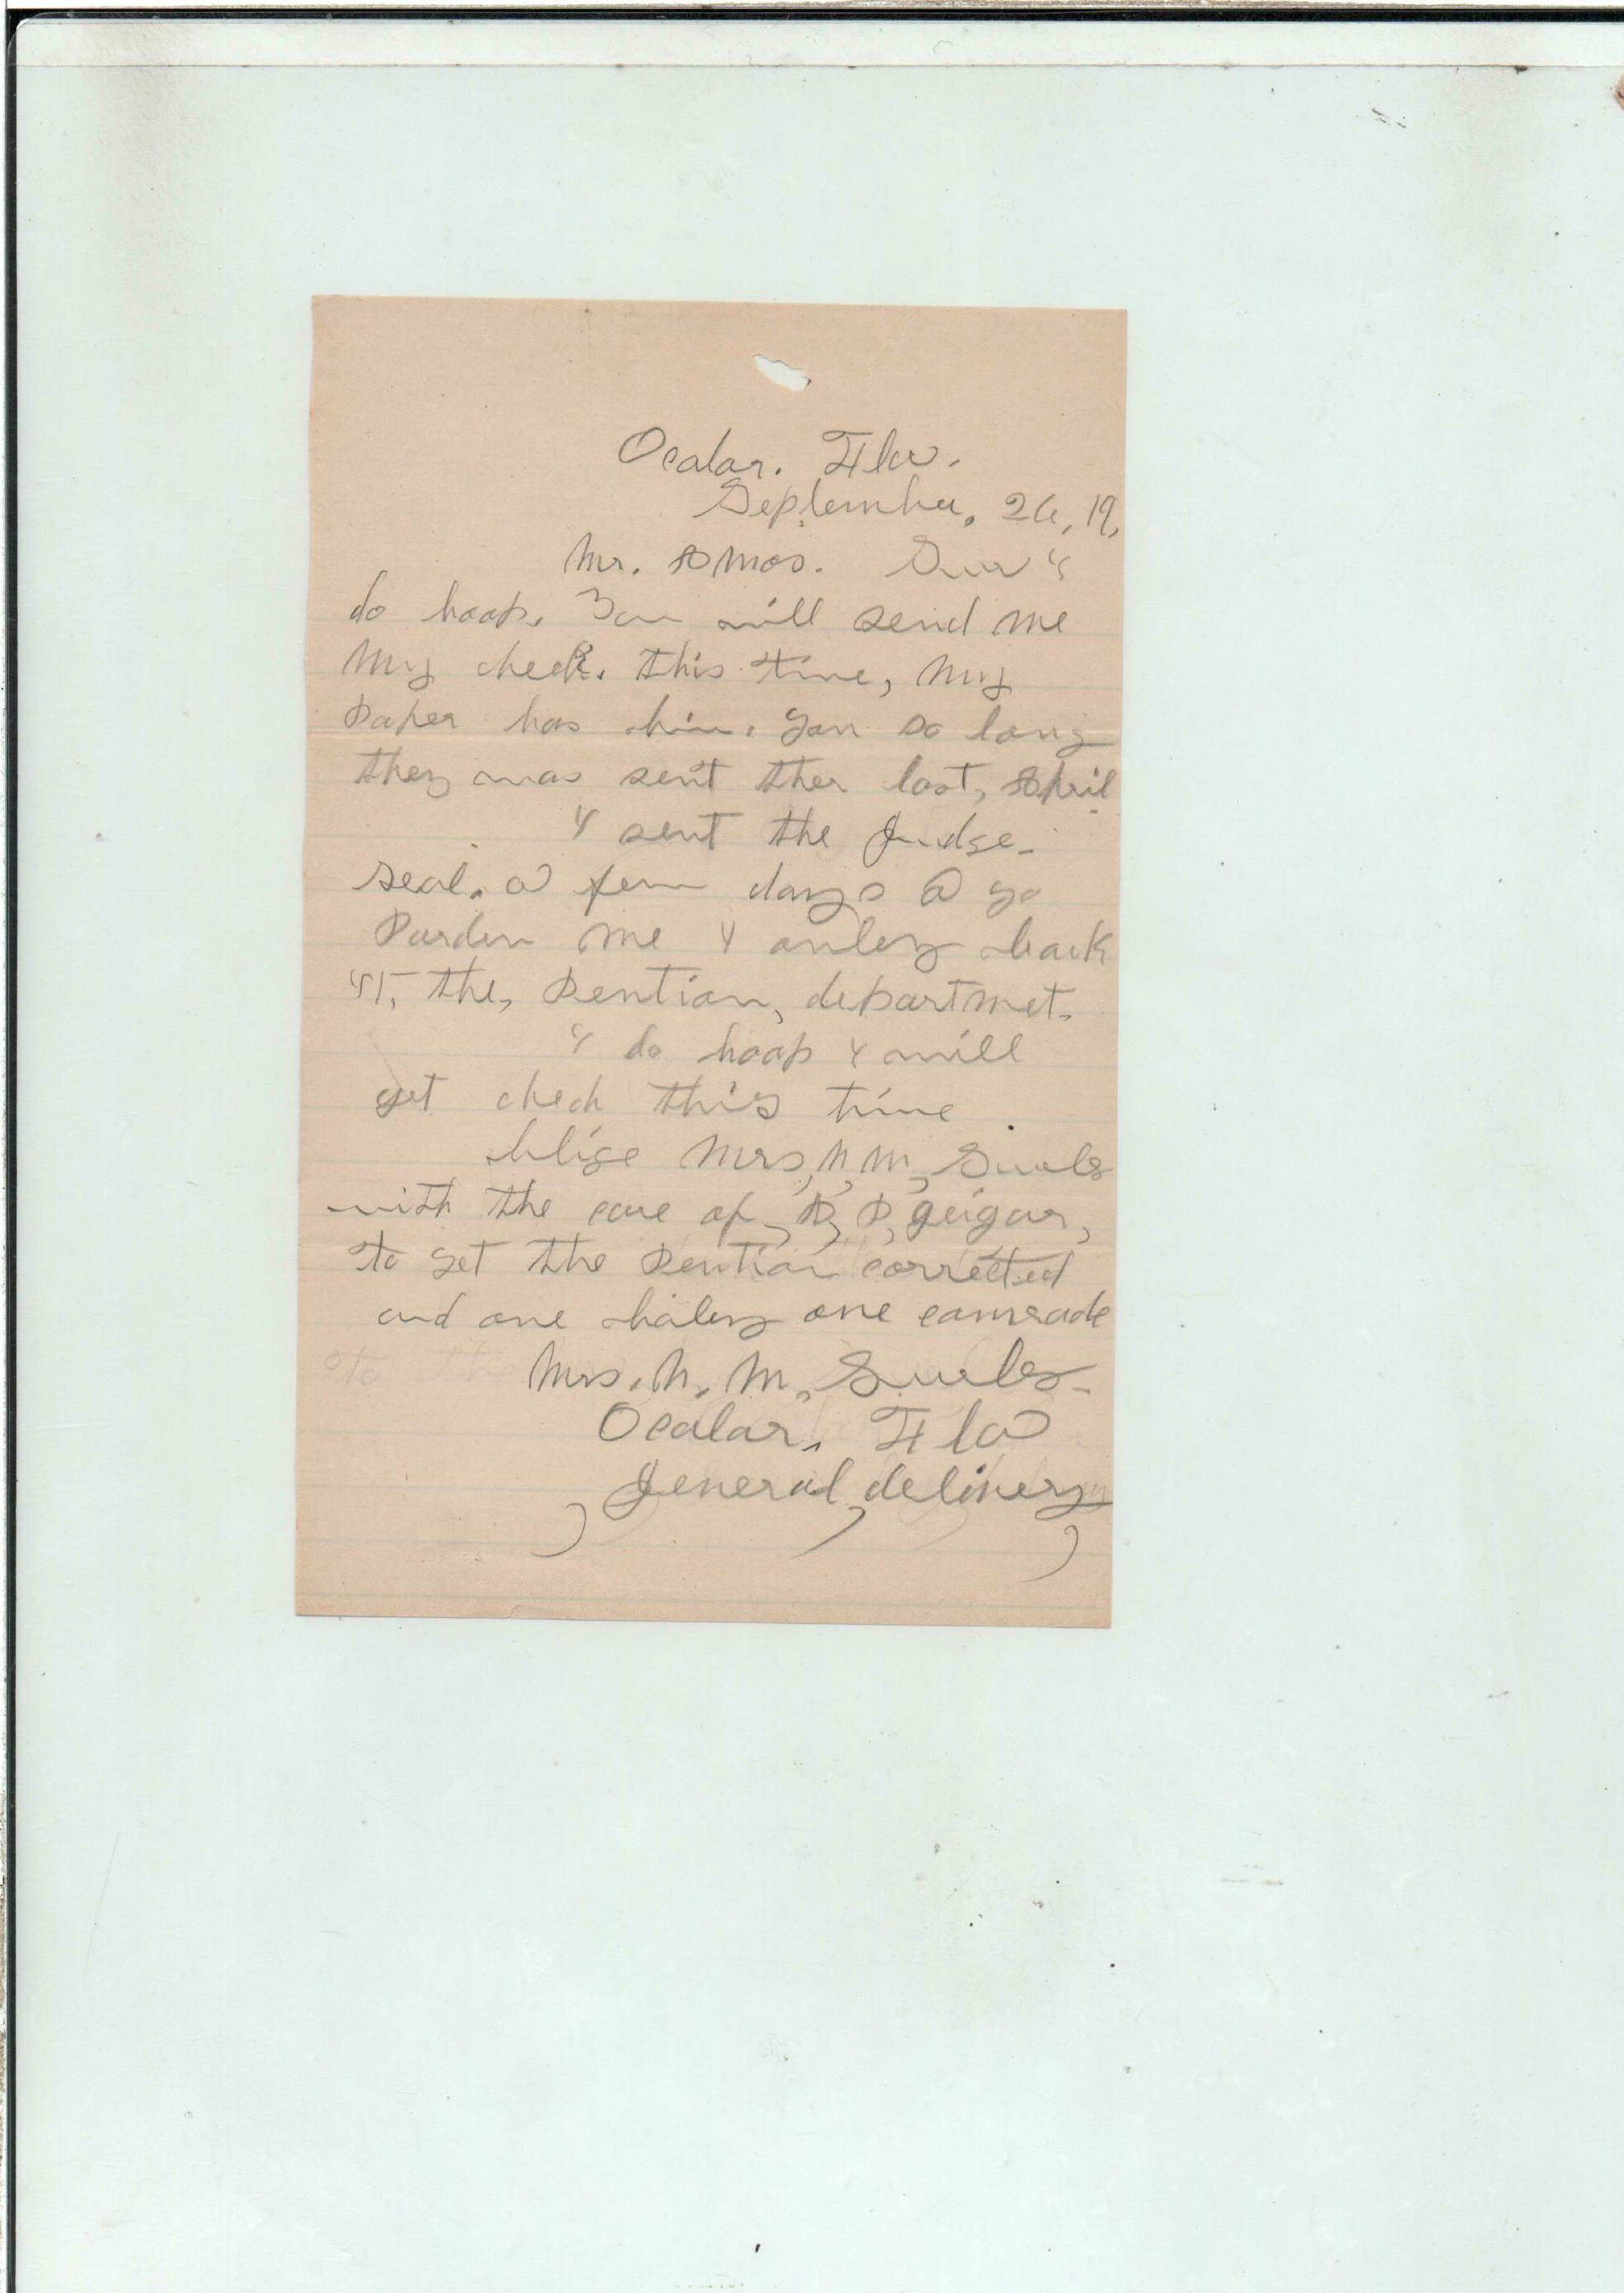 Ocalar. Fla.
September, 26, 19,
Mr. Amos. Dear I
do hoap. You will send me
my check. this time, my
paper has bin. gon so long
they was sent ther last, April
I sent the Judge
seal. a few days a go
Parden me I onley back
it, the, Pention, departmet.
I do hoap I will
get check this time
blige Mrs, N, M,
with the care of, A, P, geigar,
to get the Pention corrected
and one haley one comrade
Mrs. N. M,
Ocalar, Fla
General, delivery